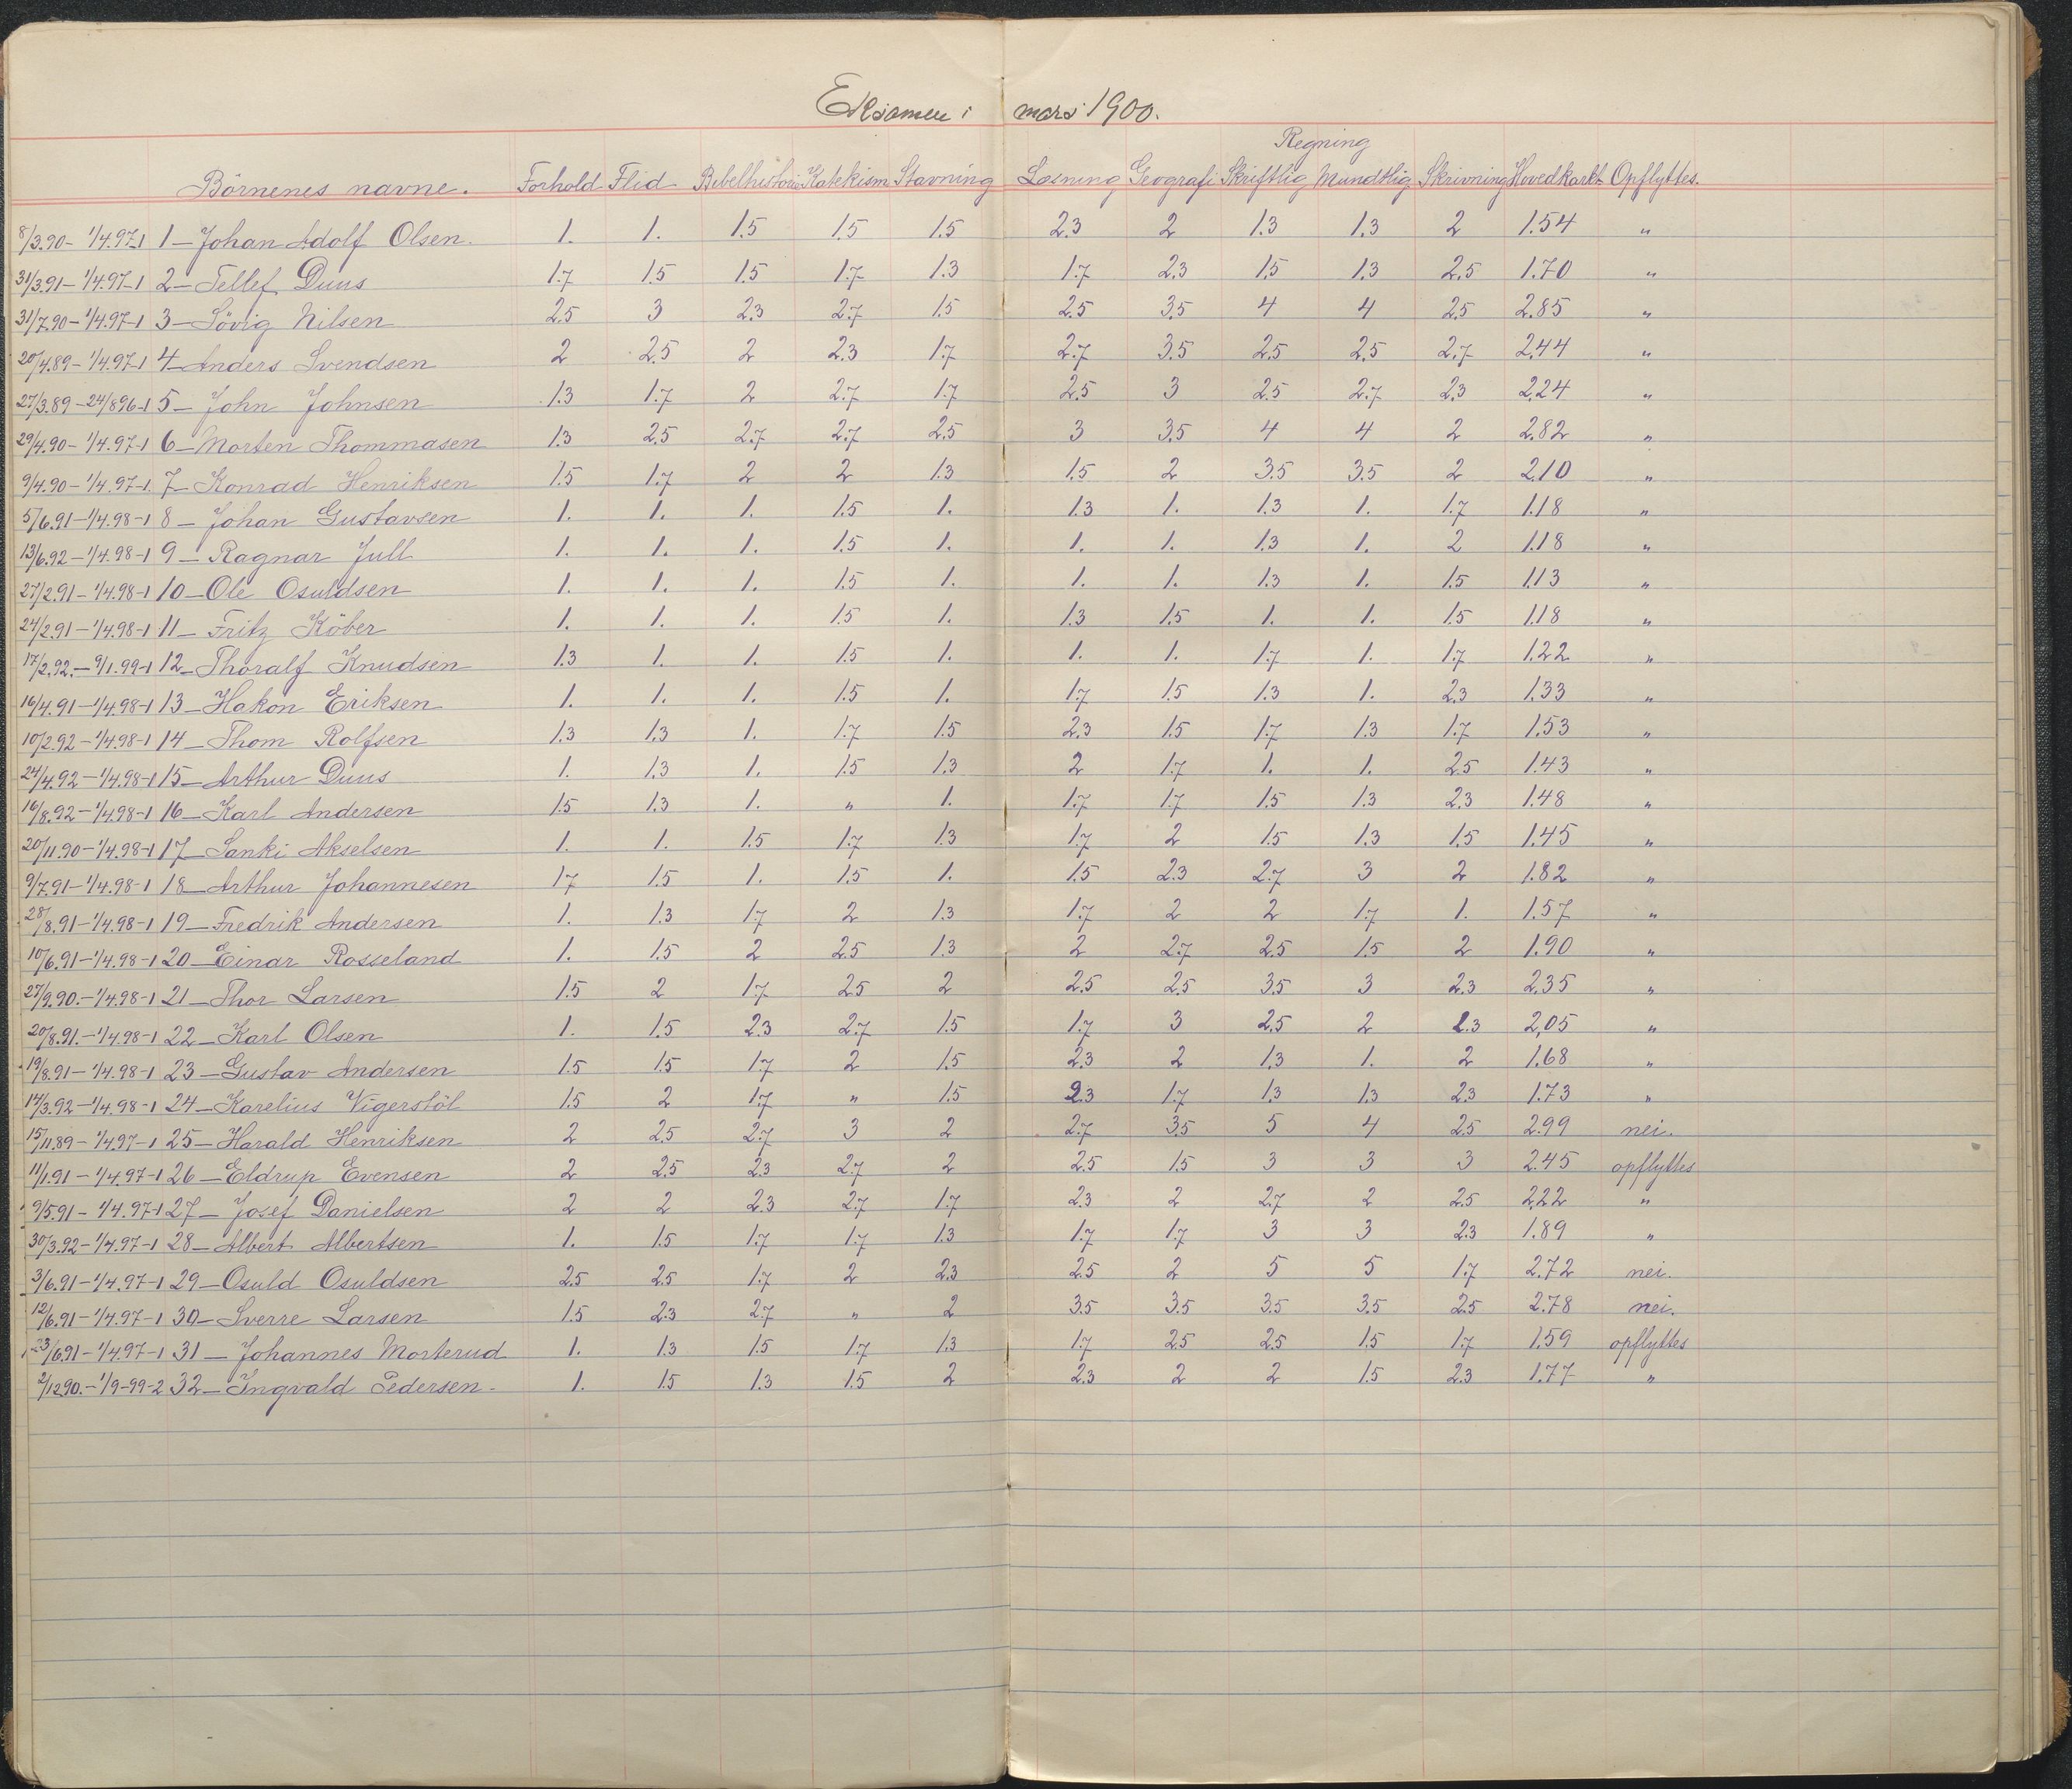 Eksamen i mars 1900.
Regning
Börnenes navne. Forhold Flid Bibelhistorie Katekism Stavning Læsning Geografi Skriftlig Mundtlig Skrivning Hovedkarkt. Opflyttes.
8/3.90- 1/4.97-1 1 - Johan Adolf Olsen. 1. 1. 1.5 1.5 1.5 2.3 2 1.3 1.3 2 1.54 "
31/3.91- 1/4.97-1 2 - Tellef Duus 1.7 1.5 1.5 1.7 1.3 1.7 2.3 1.5 1.3 2.5 1.70 "
31/7.90- 1/4.97-1 3 - Sövig Nilsen 2.5 3 2.3 2.7 1.5 2.5 3.5 4 4 2.5 2.85 "
20/4.89- 1/4.97-1 4 - Anders Svendsen 2 2.5 2 2.3 1.7 2.7 3.5 2.5 2.5 2.7 2.44 "
27/3.89-24/8 96-1 5 - John Johnsen 1.3 1.7 2 2.7 1.7 2.5 3 2.5 2.7 2.3 2.24 "
29/4.90- 1/4.97-1 6 - Morten Thommasen 1.3 2.5 2.7 2.7 2.5 3 3.5 4 4 2 2.82 "
9/4.90- 1/4.97-1. 7 - Konrad Henriksen 1.5 1.7 2 2 1.3 1.5 2 3.5 3.5 2 2.10 "
5/6.91- 1/4.98-1 8 - Johan Gustavsen 1. 1. 1. 1.5 1. 1.3 1. 1.3 1. 1.7 1.18 "
13/6.92- 1/4.98-1 9 - Ragnar Jull 1. 1. 1. 1.5 1. 1. 1. 1.3 1. 2 1.18 "
27/2.91- 1/4.98-1 10 - Ole Osuldsen 1. 1. 1. 1.5 1. 1. 1. 1.3 1. 1.5 1.13 "
24/2.91- 1/4.98-1 11 - Fritz Köber 1. 1. 1. 1.5 1. 1.3 1.5 1. 1. 1.5 1.18 "
17/2.92.- 9/1.99-1 12 - Thoralf Knudsen 1.3 1. 1. 1.5 1. 1. 1. 1.7 1. 1.7 1.22 "
16/4.91- 1/4.98-1 13 - Hakon Eriksen 1. 1. 1. 1.5 1. 1.7 1.5 1.3 1. 2.3 1.33 "
10/2.92- 1/4.98-1 14 - Thom Rolfsen 1.3 1.3 1. 1.7 1.5 2.3 1.5 1.7 1.3 1.7 1.53 "
24/4.92- 1/4.98-1 15 - Arthur Duus 1. 1.3 1. 1.5 1.3 2 1.7 1. 1. 2.5 1.43 "
16/8.92- 1/4.98-1 16 - Karl Andersen 1.5 1.3 1. " 1. 1.7 1.7 1.5 1.3 2.3 1.48 "
20/11.90- 1/4.98-1 17 - Sanki Akselsen 1. 1. 1.5 1.7 1.3 1.7 2 1.5 1.3 1.5 1.45 "
9/7.91- 1/4.98-1 18 - Arthur Johannesen 1.7 1.5 1. 1.5 1. 1.5 2.3 2.7 3 2 1.82 "
28/8.91- 1/4.98-1 19 - Fredrik Andersen 1. 1.3 1.7 2 1.3 1.7 2 2 1.7 1. 1.57 "
10/6.91- 1/4.98-1 20 - Einar Rosseland 1. 1.5 2 2.5 1.3 2 2.7 2.5 1.5 2 1.90 "
27/9.90.- 1/4.98-1 21 - Thor Larsen 1.5 2 1.7 2.5 2 2.5 2.5 3.5 3 2.3 2.35 "
20/8.91.- 1/4.98-1 22 - Karl Olsen 1. 1.5 2.3 2.7 1.5 1.7 3 2.5 2 2.3 2,05 "
19/8.91- 1/4.98-1 23 - Gustav Andersen 1.5 1.5 1.7 2 1.5 2.3 2 1.3 1. 2 1.68 "
14/3.92- 1/4.98-1 24 - Karelius Vigerstöl 1.5 2 1.7 " 1.5 2.3 1.7 1.3 1.3 2.3 1.73 "
15/11.89- 1/4.97-1 25 - Harald Henriksen 2 2.5 2.7 3 2 2.7 3.5 5 4 2.5 2.99 nei.
11/1.91- 1/4.97-1 26 - Eldrup Evensen 2 2.5 2.3 2.7 2 2.5 1.5 3 3 3 2.45 opflyttes
9/5.91- 1/4.97-1 27 - Josef Danielsen 2 2 2.3 2.7 1.7 2.3 2 2.7 2 2.5 2.22 "
30/3.92- 1/4.97-1 28 - Albert Albertsen 1. 1.5 1.7 1.7 1.3 1.7 1.7 3 3 2.3 1.89 "
3/6.91- 1/4.97-1 29 - Osuld Osuldsen 2.5 2.5 1.7 2 2.3 2.5 2 5 5 1.7 2.72 nei.
12/6.91- 1/4.97-1 30 - Sverre Larsen 1.5 2.3 2.7 " 2 3.5 3.5 3.5 3.5 2.5 2.78 nei.
23/6.91- 1/4.97-1 31 - Johannes Morterud 1. 1.3 1.5 1.7 1.3 1.7 2.5 2.5 1.5 1.7 1.59 opflyttes
2/12.90.- 1/9-99-2 32 - Ingvald Pedersen - 1. 1.5 1.3 1.5 2 2.3 2 2 1.5 2.3 1.77 "